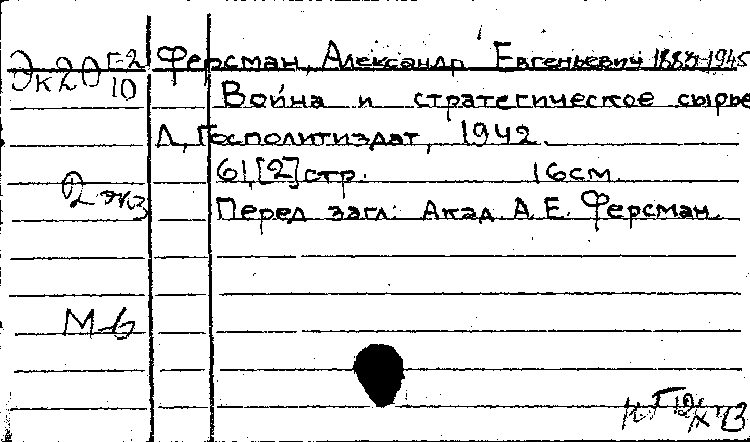 Эк20 Г-2/10
Ферсман, Александр Евгеньевич 1883-1945
Война и стратегическое сырье
Л, Госполитиздат, 1942.
61,[2]стр. 16см.
2 экз
Перед загл: Акад. А.Е. Ферсман.
М-6